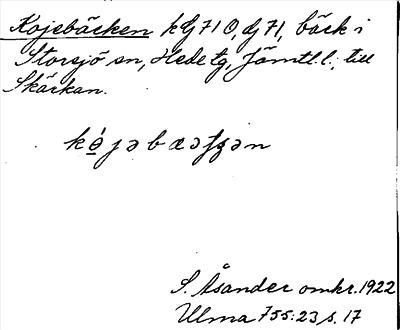 Kojebäcken kG 710, dj 71, bäck i
Storsjö sn, Hede tg, Jämtl. l., till
Skärkan.
S. Åsander omkr. 1922
Ulma 755:23 s. 17